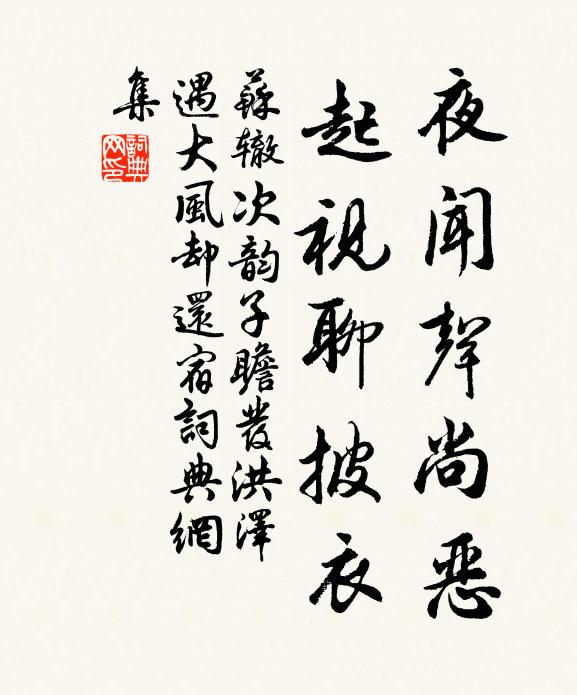 夜闻聲尚恶
起視聊披衣
蘇辙次韵子瞻發洪澤
遇大風却還宿詞典網
集
詞典
网印